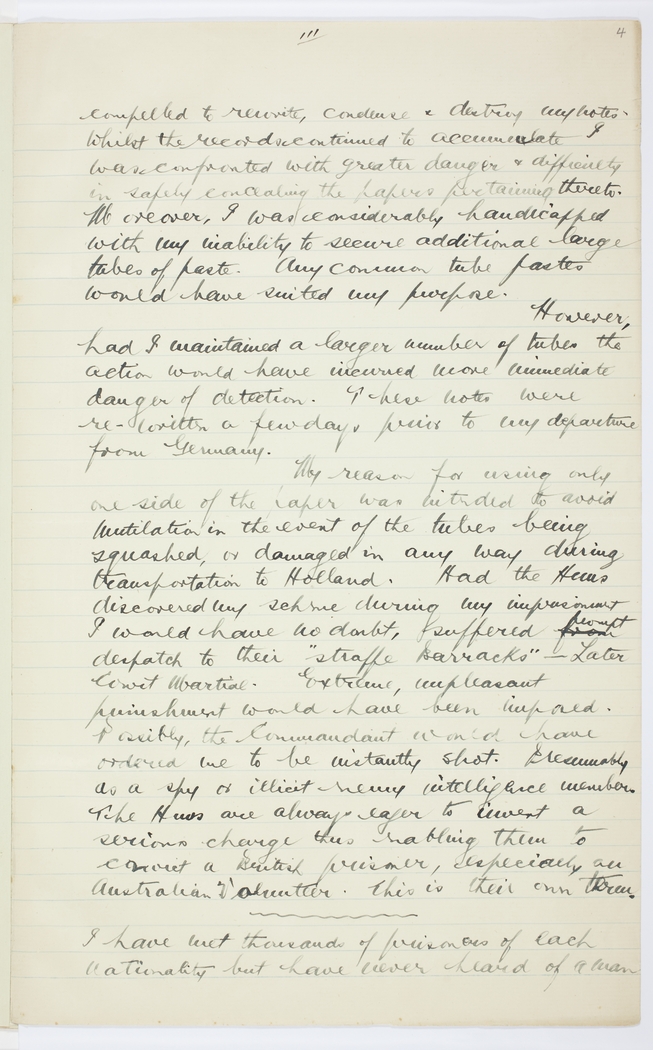 111
4
compelled to rewrite, condense & destroy my notes.
Whilst the records continued to accumulate I
was confronted with greater danger & difficulty
in safely concealing the papers pertaining thereto.
Moreover, I was considerably handicapped
with my inability to secure additional large
tubes of paste. Any common tube pastes
would have suited my purpose.
However,
had I maintained a larger number of tubes the
action would have incurred more immediate
danger of detection. These notes were
re-written a few days prior to my departure
from Germany.
My reason for using only
one side of the paper was intended to avoid
mutilation in the event of the tubes being
squashed, or damaged in any way during
transportation to Holland. Had the Huns
discovered my scheme during my imprisonment
I would have no doubt, suffered from prompt
despatch to their "straffe Barracks" — Later
Court Martial. Extreme, unpleasant
punishment would have been imposed.
Possibly, the Commandant would have
ordered me to be instantly shot. Presumably
as a spy or illicit enemy intelligence member.
The Huns are always eager to invent a
serious charge thus enabling them to
convict a British prisoner, especially an
Australian Volunteer. This is their own
I have met thousands of prisoners of each
nationality but have never heard of a man